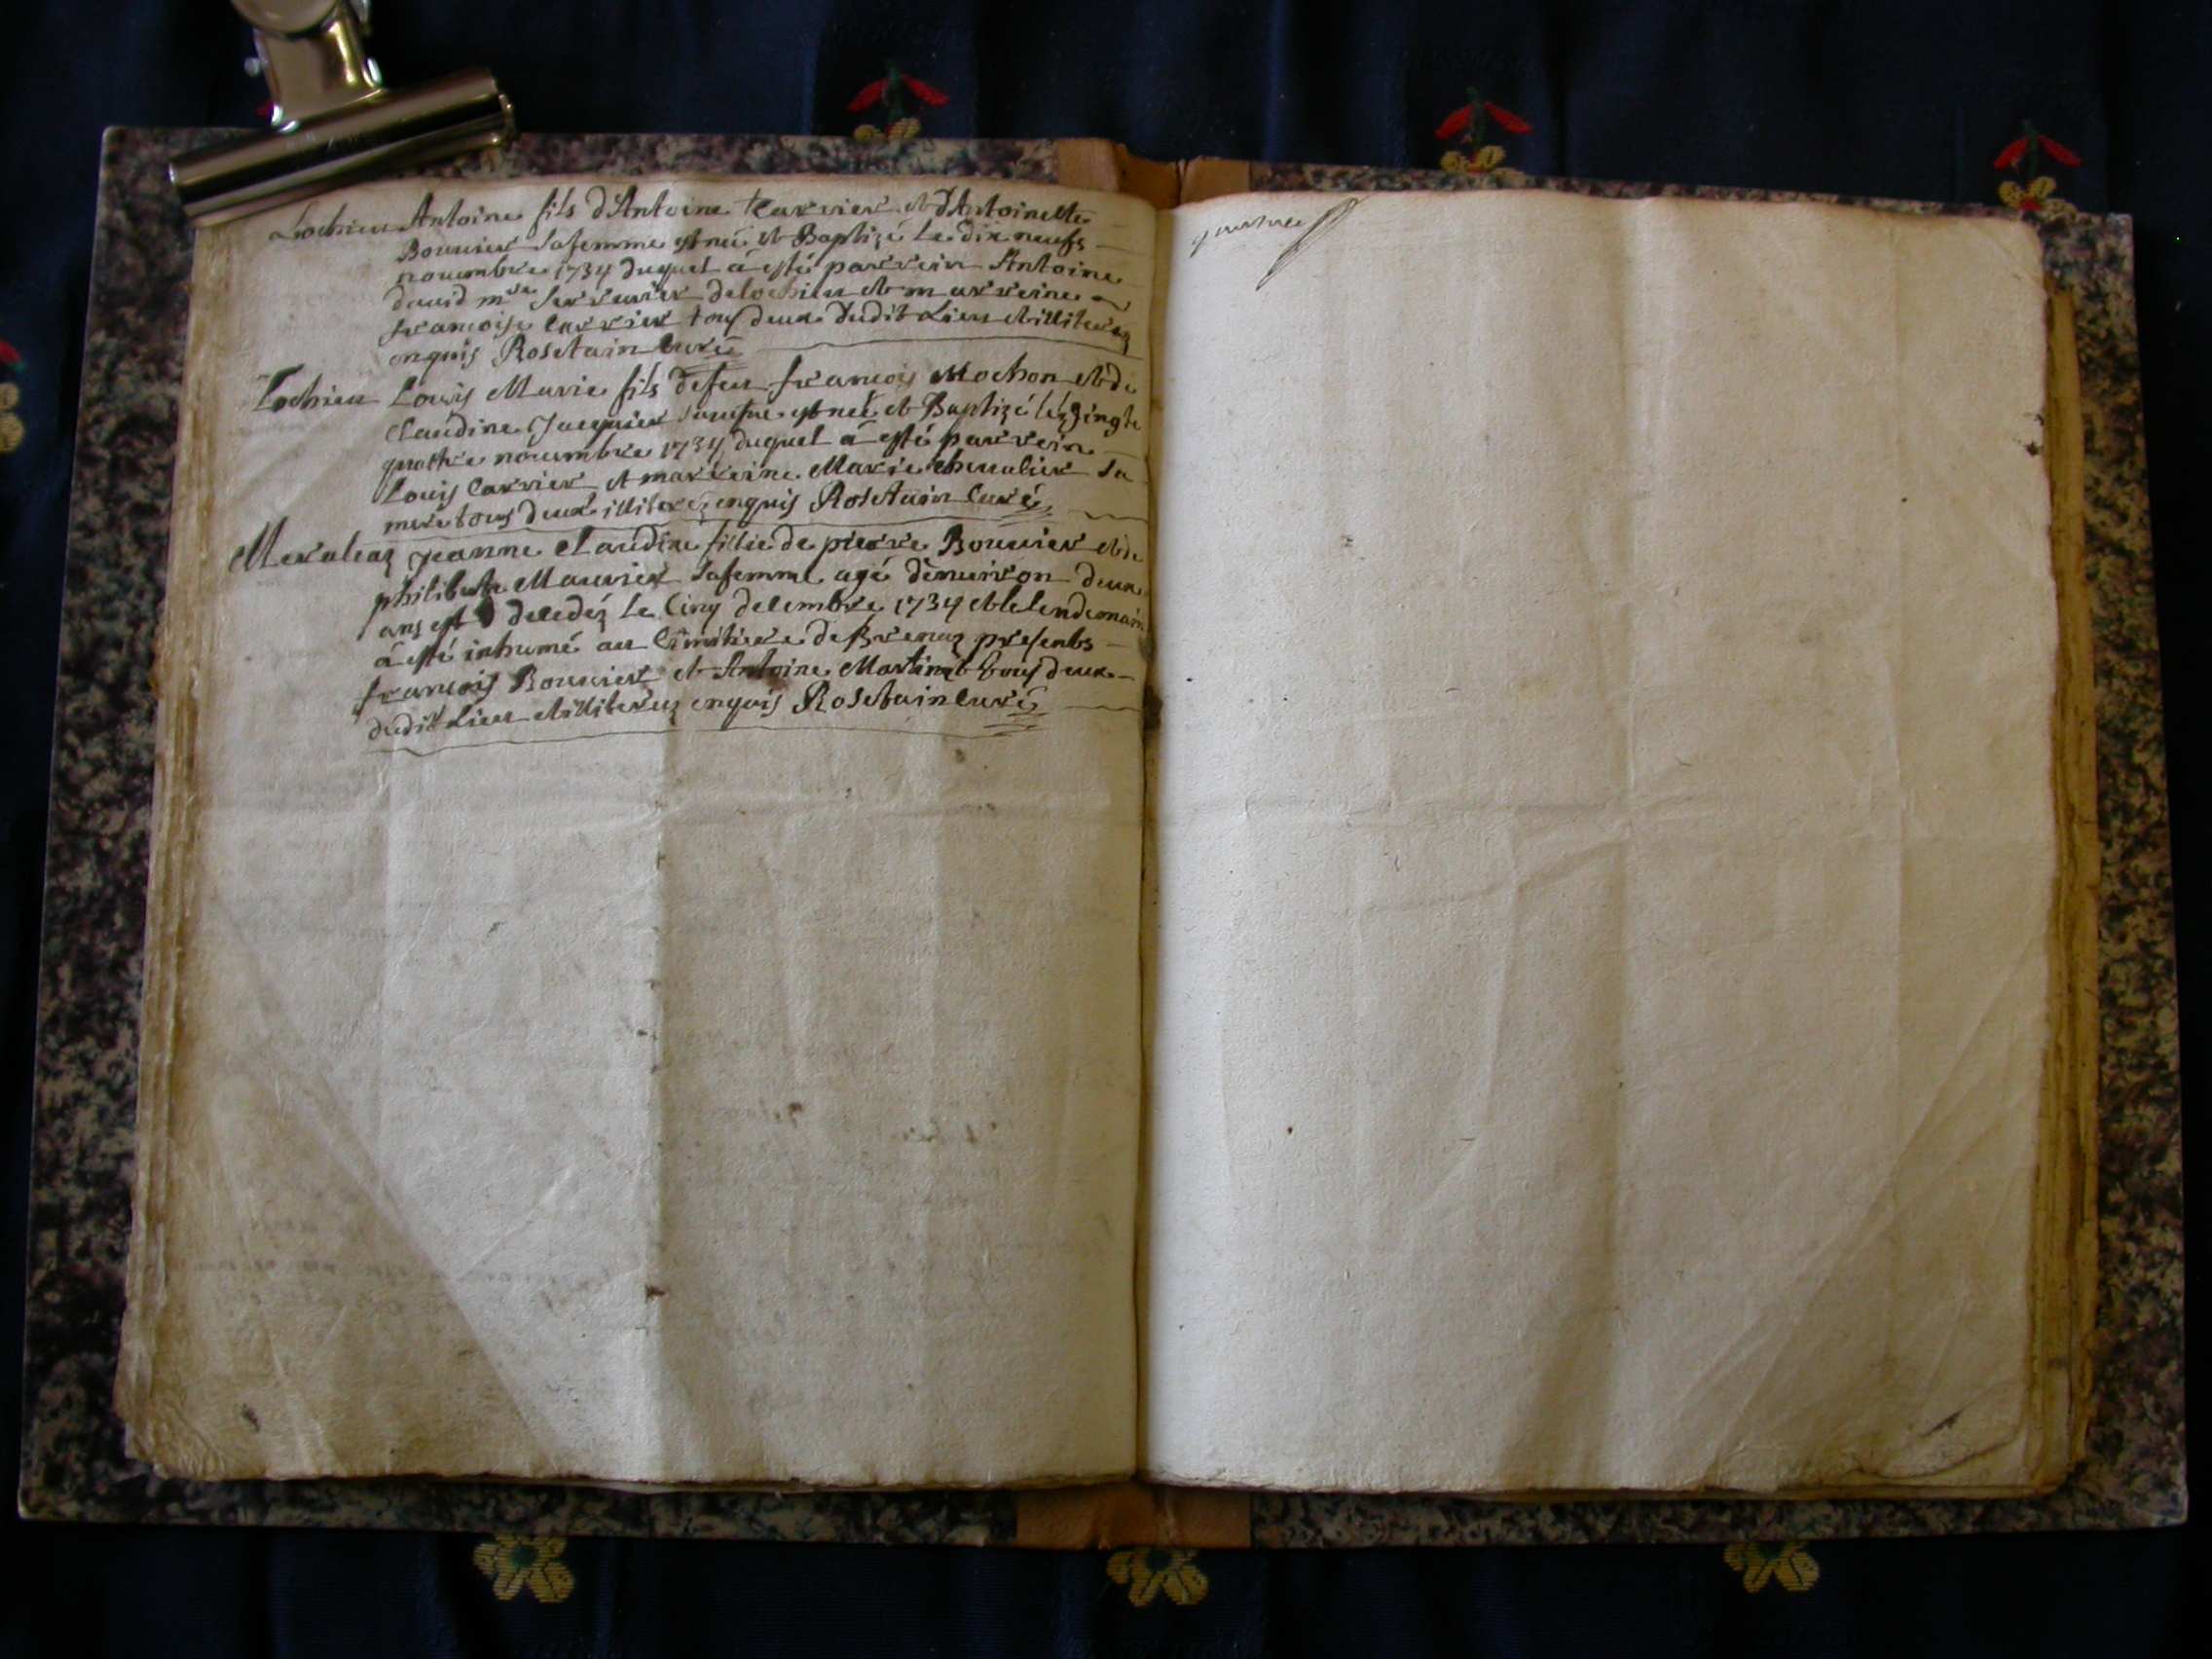 Lochieu Antoine fils d'Antoine Carrier et d'Antoinette
Bouvier sa femme est né et Baptizé le dix neufs
nouembre 1734 duquel a esté parrein Antoine
david mre serrurier de lochieu et marreine
francoise Carrier tous deux dudit Lieu et illiterez
enquis Rosetain Curé
Lochieu Louis Marie fils de feu francois Mochon et de
Claudine Jacquier sa veufue est né et Baptizé le vingte
quattre nouembre 1734 duquel a esté parrein
Louis Carrier et marreine Marie cheualier sa
mere tous deux illiterez enquis Rosetain Curé
Meraleaz jeanne Claudine fillie de pierre Bouuier et de
philiberte Mauvier sa femme agé d'enuiron deux
ans est decedéz le Cinq decembre 1734 et le lendemain
a esté inhumé au Cimitiere de Brenaz presents
francois Bouuier et Antoine Martinet tous deux
dudit Lieu et illiterez enquis Rosetain Curé